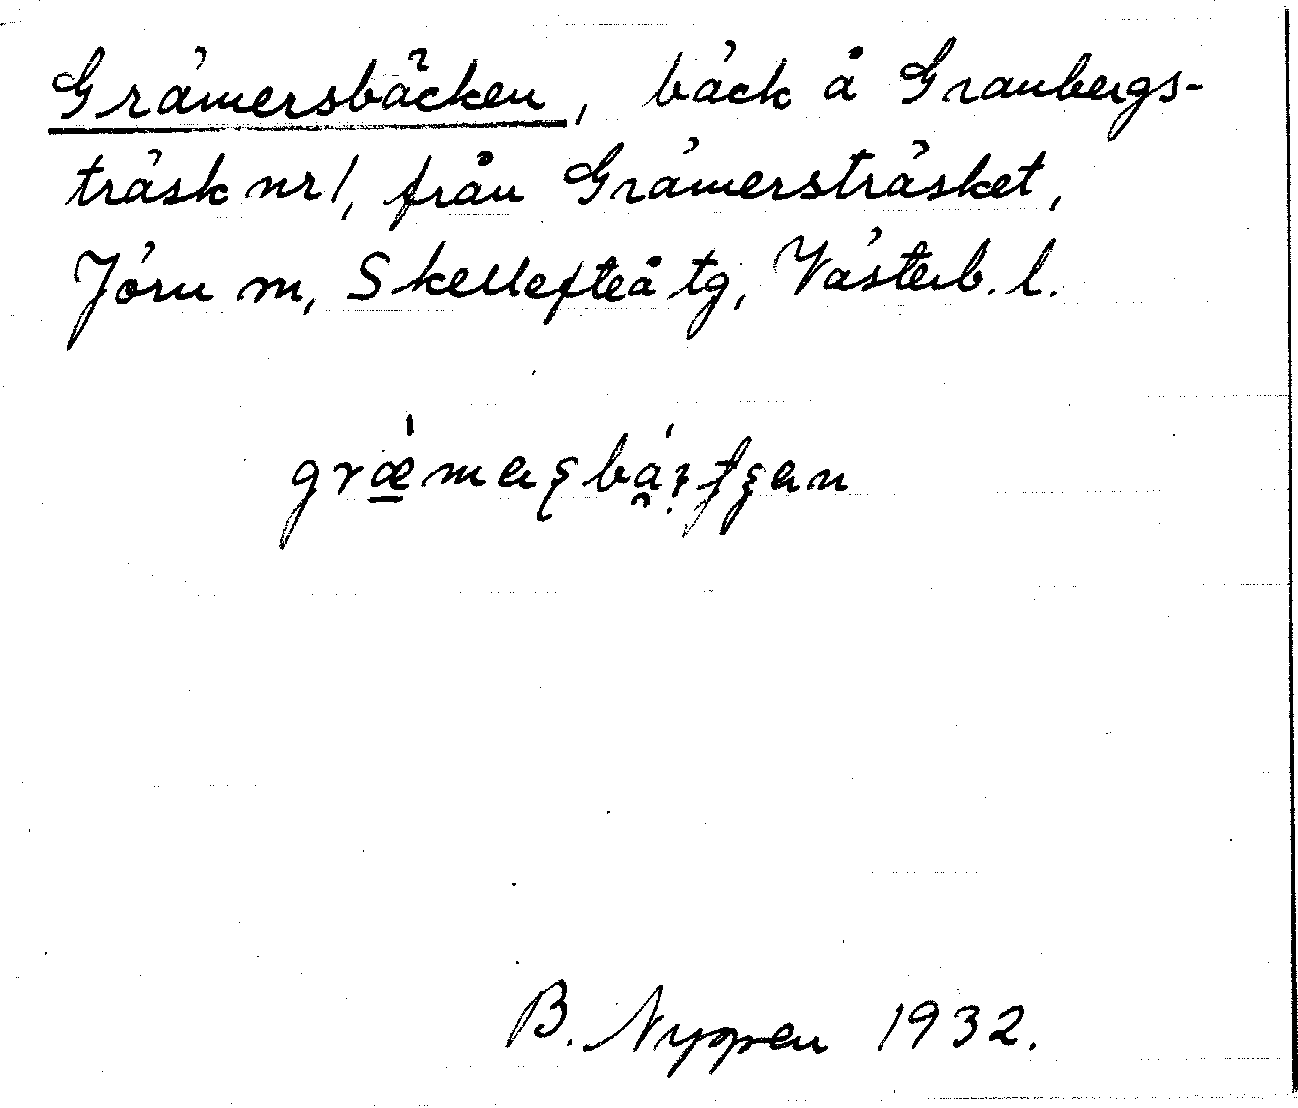 Grämersbäcken, bäck å Granbergs-
träsk nr 1, från Grämersträsket,
Jörn m, Skellefteå tg, Västerb. l.
B. Nygren 1932.